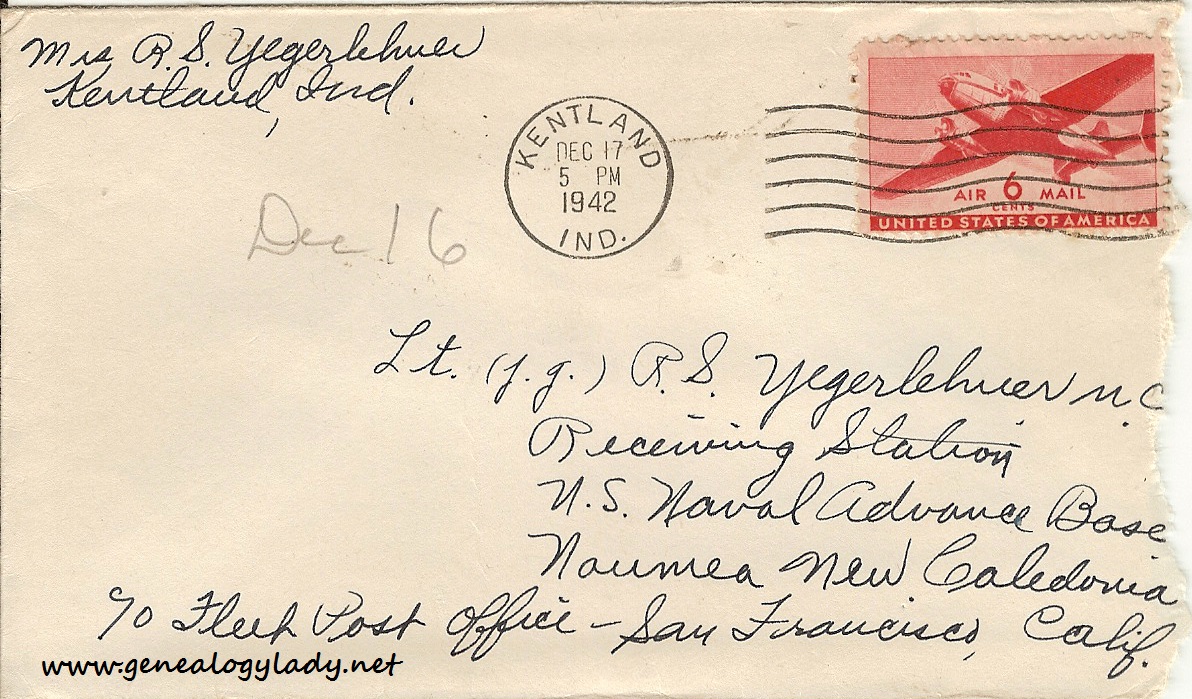 Mrs R. S. Yegerlehner
Kentland, Ind.
KENTLAND
DEC 17
5 PM
1942
IND.
AIR 6 MAIL
CENTS
UNITED STATES OF AMERICA
Dec 16
Lt. (j.g.) R. S. Yegerlehner M.C
Receiving Station
U.S. Naval Advance Base
Noumea New Caledonia
c/o Fleet Post Office - San Francisco, Calif.
www.genealogylady.net